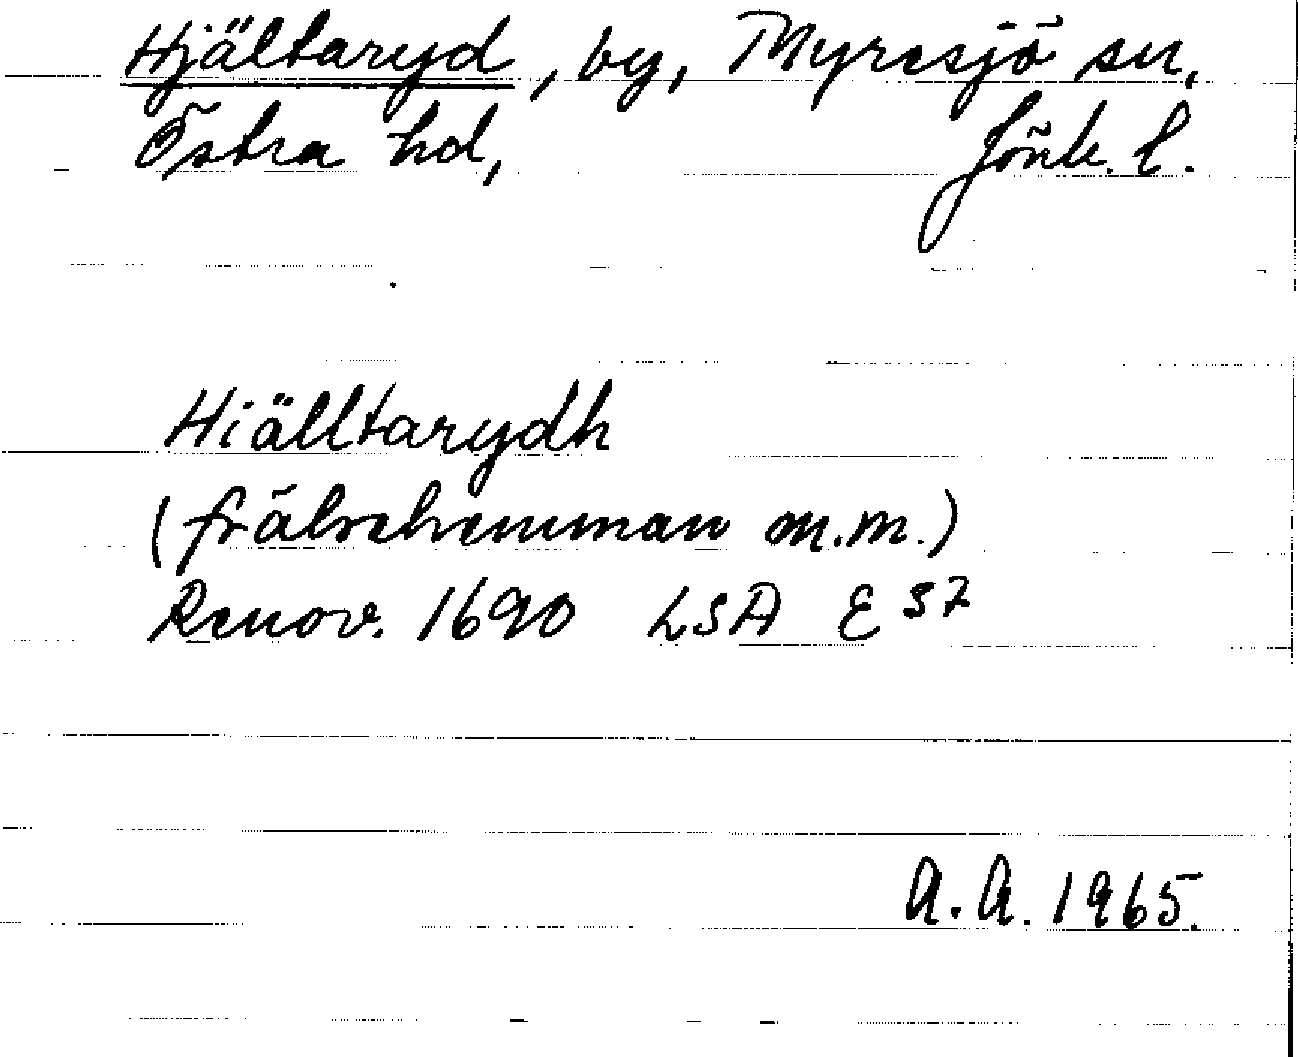 Hjältaryd, by, Myresjö sn,
Östra hd, Jönk. l.
Hiälltarydh
(frälsehemman m.m.)
Renov. 1690 LSA E 37
A.A. 1965.